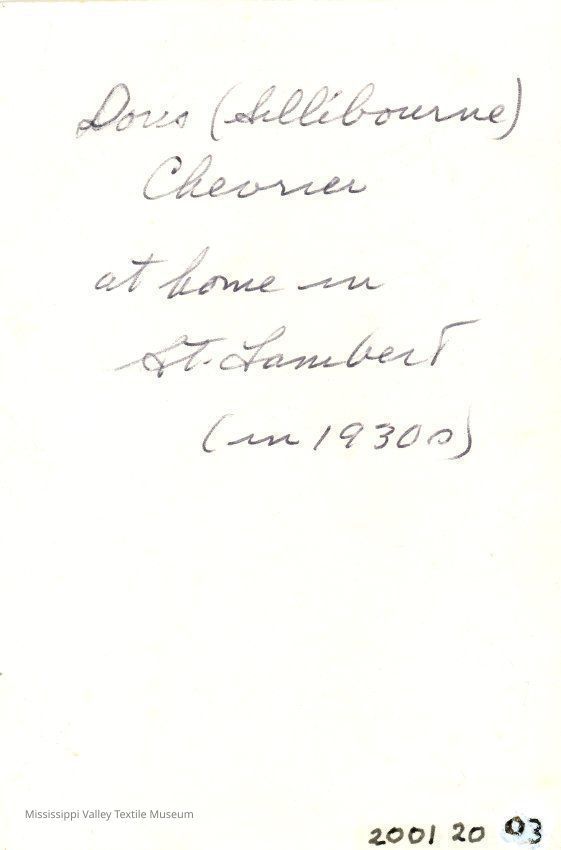 Doris (Sillibourne)
Chevrier
at home in
St. Lambert
(in 1930s)
Mississippi Valley Textile Museum
2001 20 03